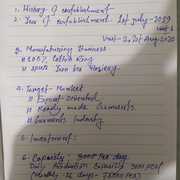 1. History of establishment
2. Year of establishment 1st July-2019
Unit-1
Unit-2: 1st Aug 2020
3. Manufacturing Business
* 100% Cotton
* Hosiery
4. Target Market
* Export oriented
* Ready made Garments
* Garments Industry
5. Investment:
6. Capacity: 3000 Per day.
Daily Production Capacity 3000 pcs/
Monthly - 26 days - 78000 pcs